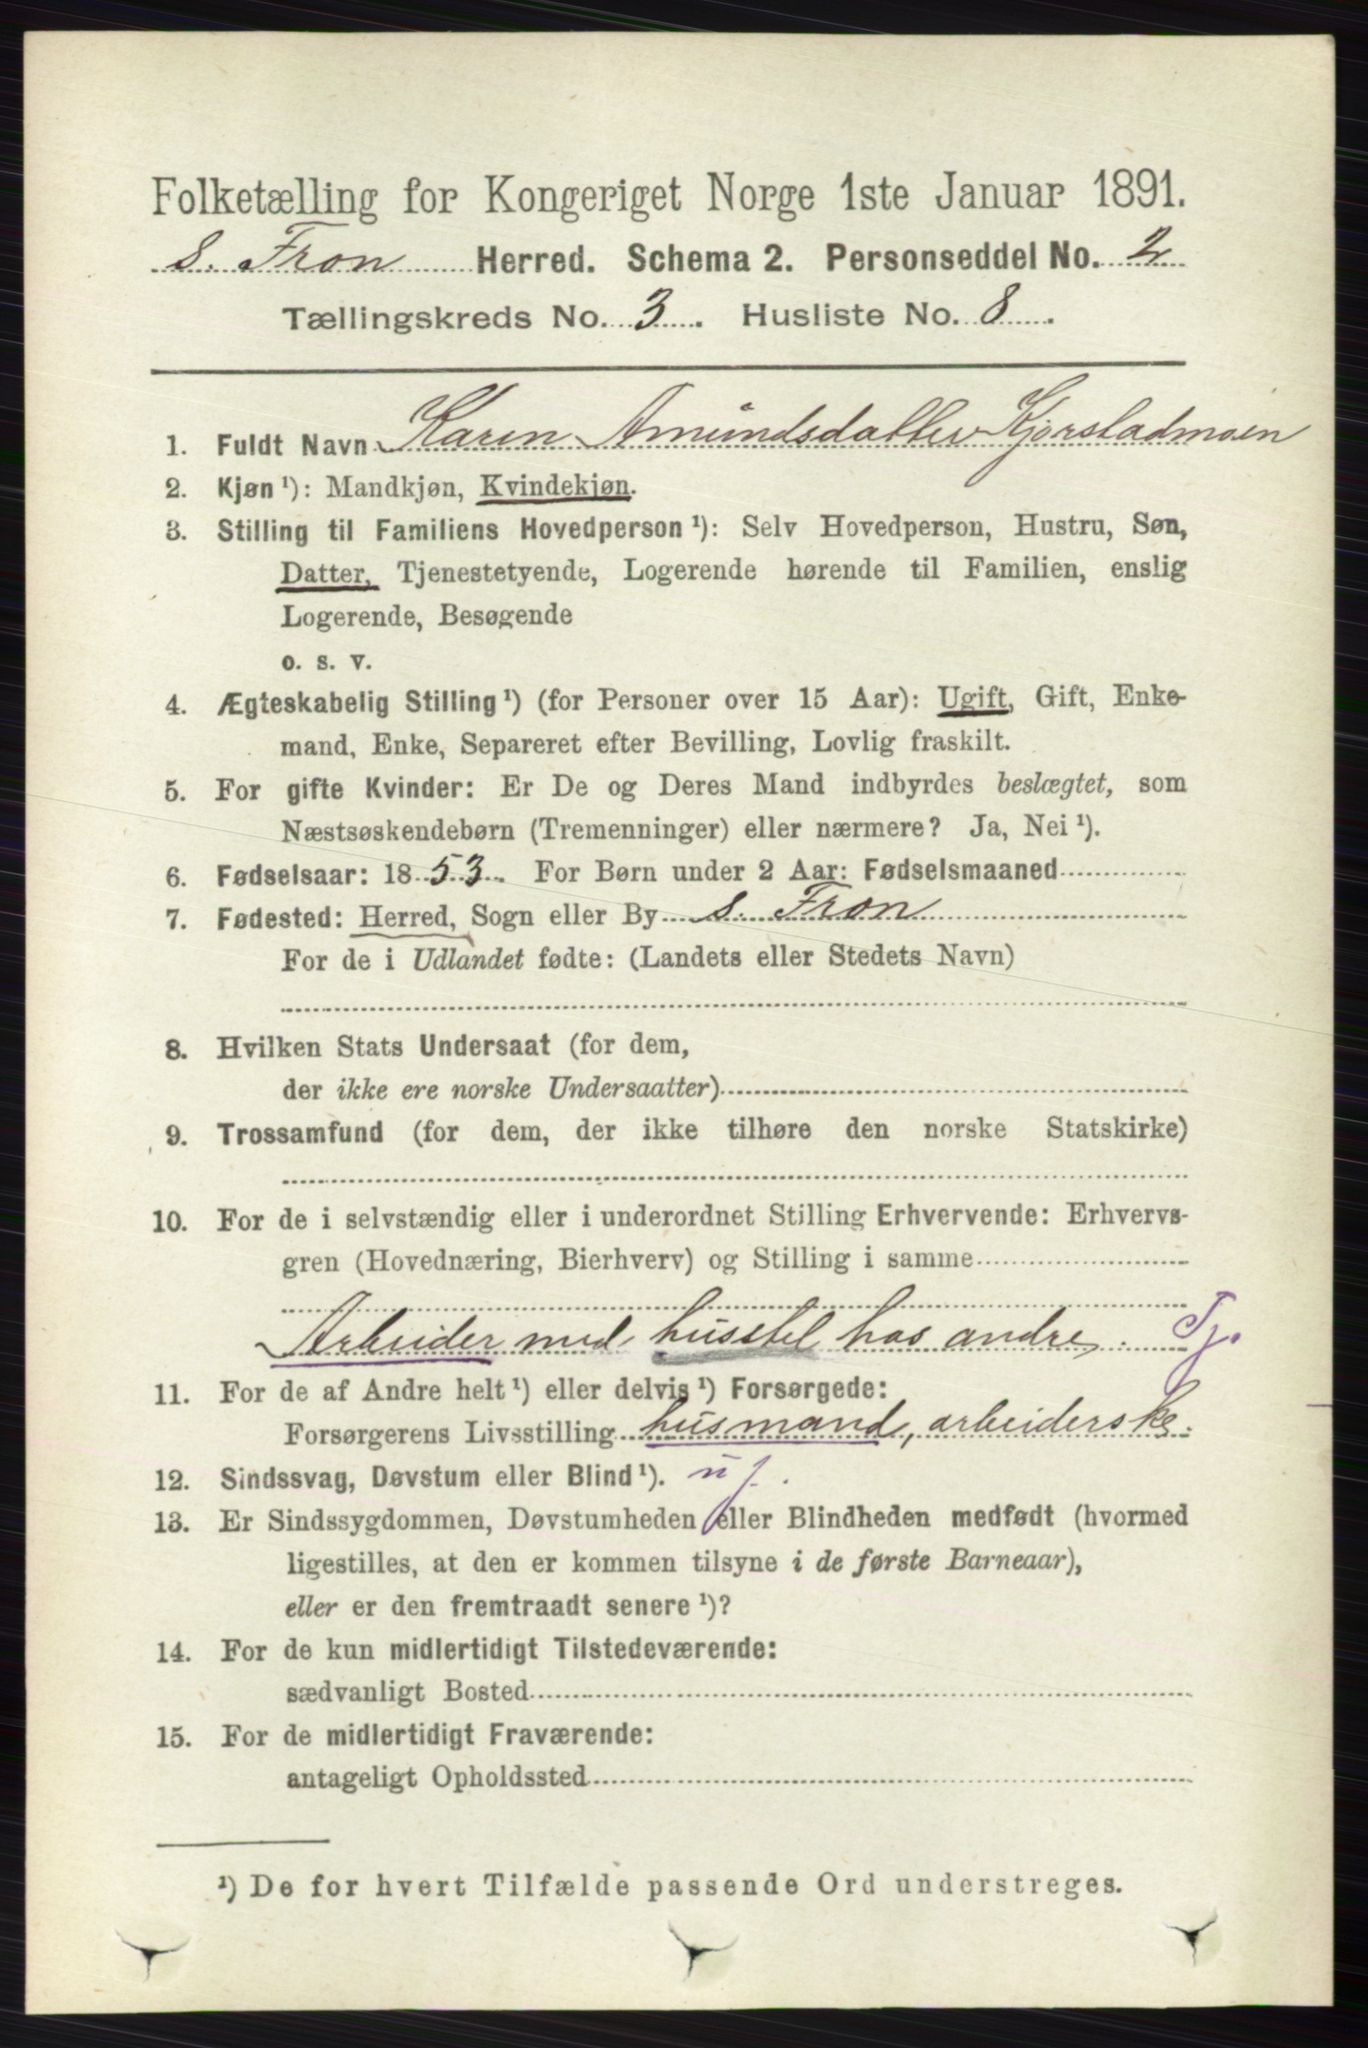 Folketælling for Kongeriget Norge 1ste Januar 1891.
S. Fron Herred. Schema 2. Personseddel No. 2
Tællingskreds No. 3. Husliste No. 8.
1. Fuldt Navn Karen Amundsdatter Kjorstadmoen
2. Kjøn ¹): Mandkjøn, Kvindekjøn.
3. Stilling til Familiens Hovedperson ¹): Selv Hovedperson, Hustru, Søn,
Datter, Tjenestetyende, Logerende hørende til Familien, enslig
Logerende, Besøgende
o. s. v.
4. Ægteskabelig Stilling ¹) (for Personer over 15 Aar): Ugift, Gift, Enke-
mand, Enke, Separeret efter Bevilling, Lovlig fraskilt.
5. For gifte Kvinder: Er De og Deres Mand indbyrdes beslægtet, som
Næstsøskendebørn (Tremenninger) eller nærmere? Ja, Nei ¹).
6. Fødselsaar: 1853. For Børn under 2 Aar: Fødselsmaaned
7. Fødested: Herred, Sogn eller By S. Fron
For de i Udlandet fødte: (Landets eller Stedets Navn)
8. Hvilken Stats Undersaat (for dem,
der ikke ere norske Undersaatter)
9. Trossamfund (for dem, der ikke tilhøre den norske Statskirke)
10. For de i selvstændig eller i underordnet Stilling Erhvervende: Erhvervs-
gren (Hovednæring, Bierhverv) og Stilling i samme
Arbeider med husstel hos andre. Tj.
11. For de af Andre helt ¹) eller delvis ¹) Forsørgede:
Forsørgerens Livsstilling husmand, arbeiderske.
12. Sindssvag, Døvstum eller Blind ¹).
13. Er Sindssygdommen, Døvstumheden eller Blindheden medfødt (hvormed
ligestilles, at den er kommen tilsyne i de første Barneaar),
eller er den fremtraadt senere ¹)?
14. For de kun midlertidigt Tilstedeværende:
sædvanligt Bosted
15. For de midlertidigt Fraværende:
antageligt Opholdssted
¹) De for hvert Tilfælde passende Ord understreges.